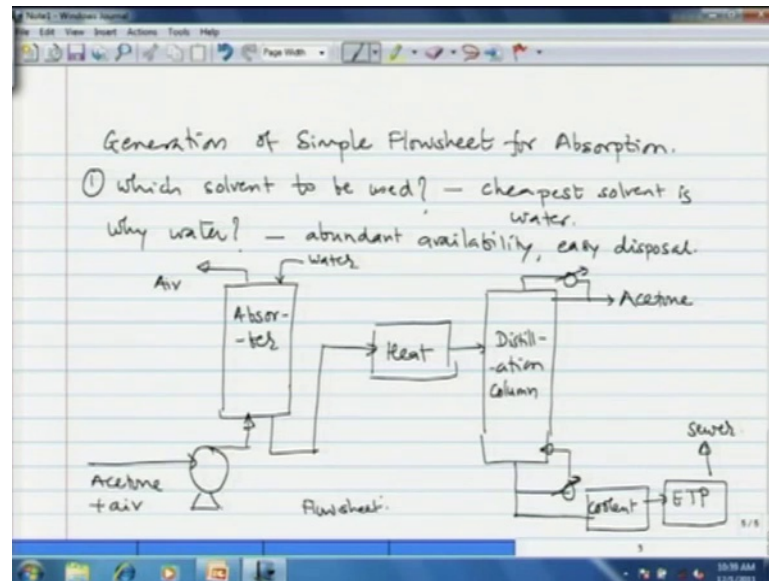 Note1 - Windows Journal
File Edit View Insert Actions Tools Help
Page Width
Generation of Simple Flowsheet for Absorption.
① which solvent to be used? — cheapest solvent is
water.
Why water? — abundant availability, easy disposal.
Air
water
Absor-
-ber
Heat
Distill-
-ation
Column
Acetone
Acetone
+ air
Flowsheet.
Coolent
ETP
Sewer
5/5
5
10:39 AM